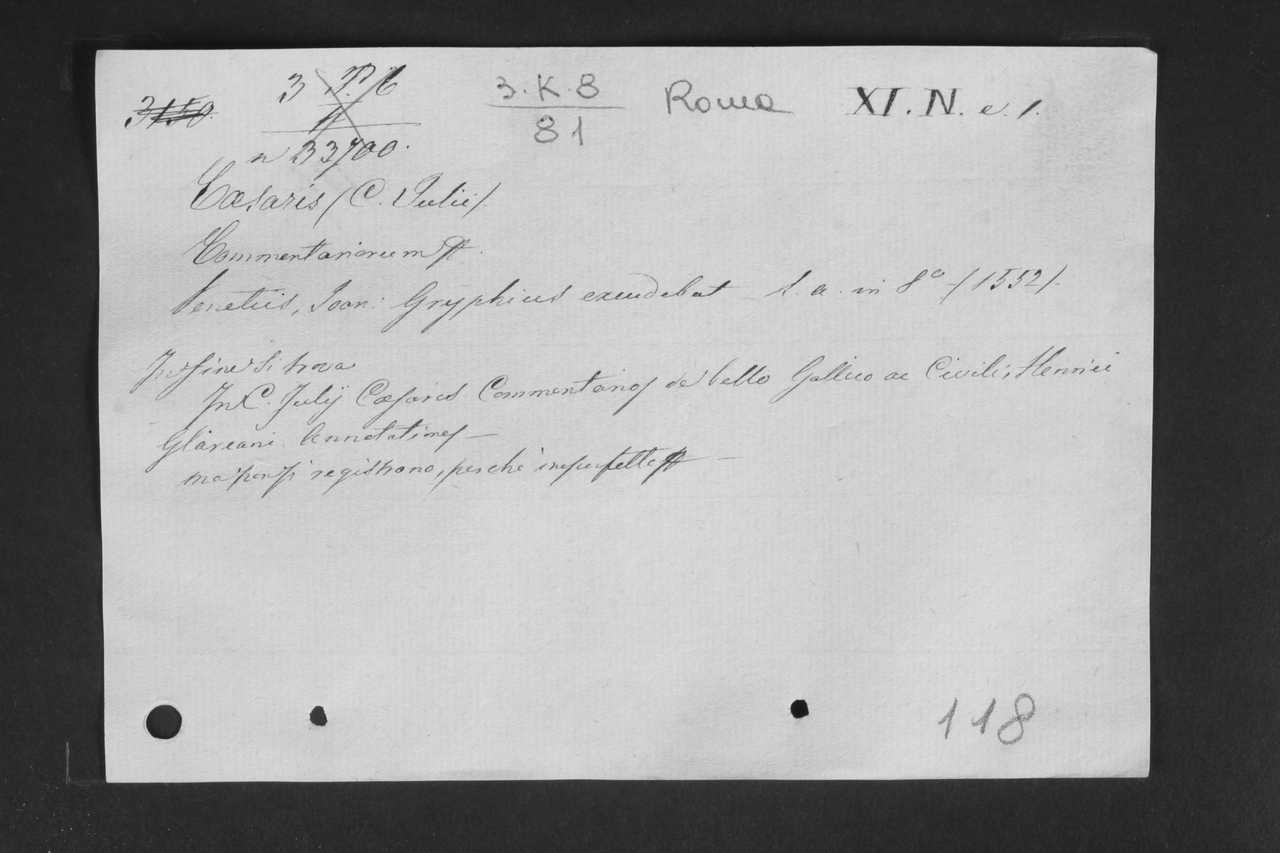 3150. 3 P. 6 3.K.8 Roma XI. N. e. 1.
81
n 33700.
Cæsaris (C. Julii)
Commentariorum
Venetiis, Joan: Gryphius excudebat s. a. in 8° (1552).
In fine si trova
In C. Julij Cæsaris Commentarios de bello Gallico ac Civili, Henrici
Glareani Annotationes —
ma non si registrano, perchè imperfette —
118